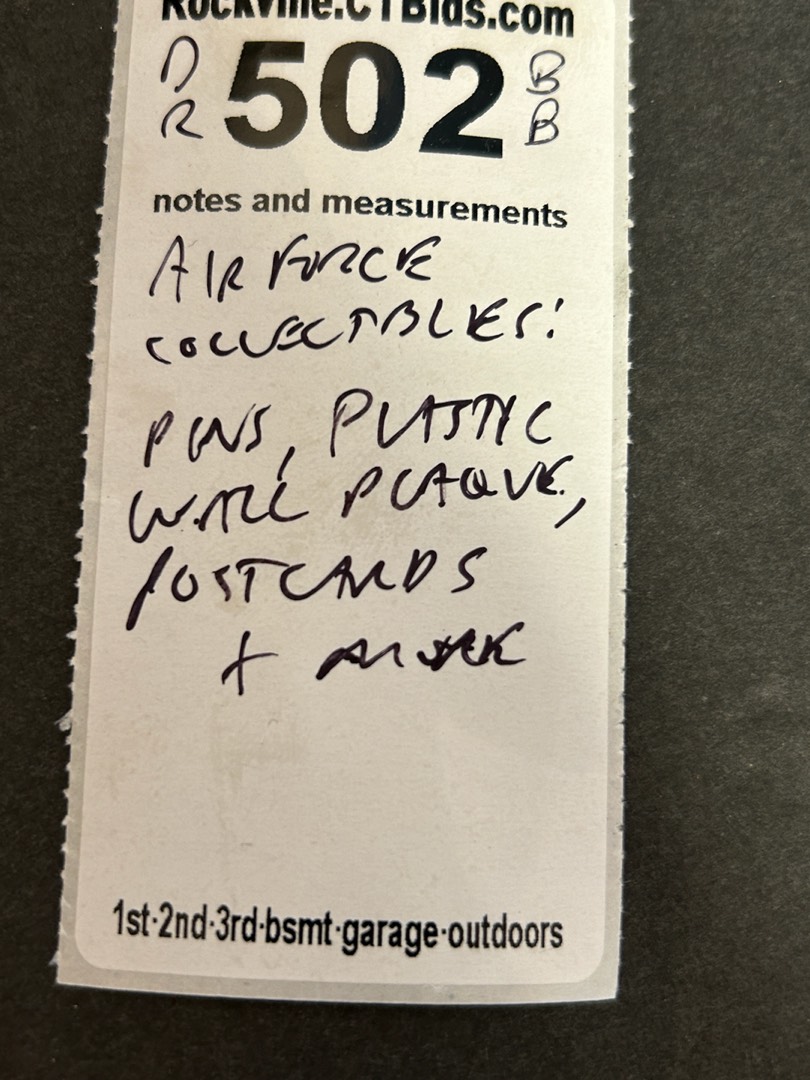 Rockville.CTBids.com
D 502 B
R B
notes and measurements
AIR FORCE
COLLECTIBLES:
PINS, PLASTIC
WALL PLAQUE,
POSTCARDS
+ MORE
1st·2nd·3rd·bsmt·garage·outdoors